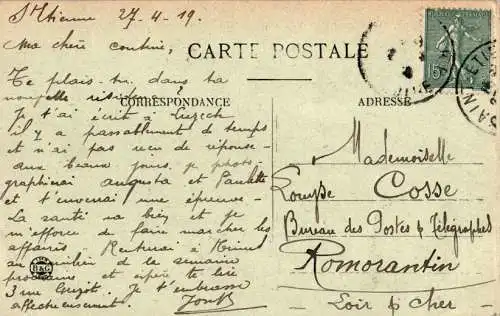 St Etienne 27-4-19.
Ma chère cousine,
CARTE POSTALE
Te plais-tu dans ta
nouvelle résidence ?
CORRESPONDANCE
ADRESSE
Je t'ai écrit à
il y a passablement de temps
et n'ai pas reçu de réponse-
aux beaux jours je photo-
graphierai Augusta et Paulette
et t'enverrai une épreuve-
La santé va bien et je
m'efforce de faire marcher les
affaires. Rentrerai à
au milieu de la semaine
prochaine et espère te lire
3 rue Creuzot. Je t'embrasse
affectueusement.
B&G
Mademoiselle
Cosse
Bureau des Postes & Télégraphes
Romorantin
Loir & Cher
15